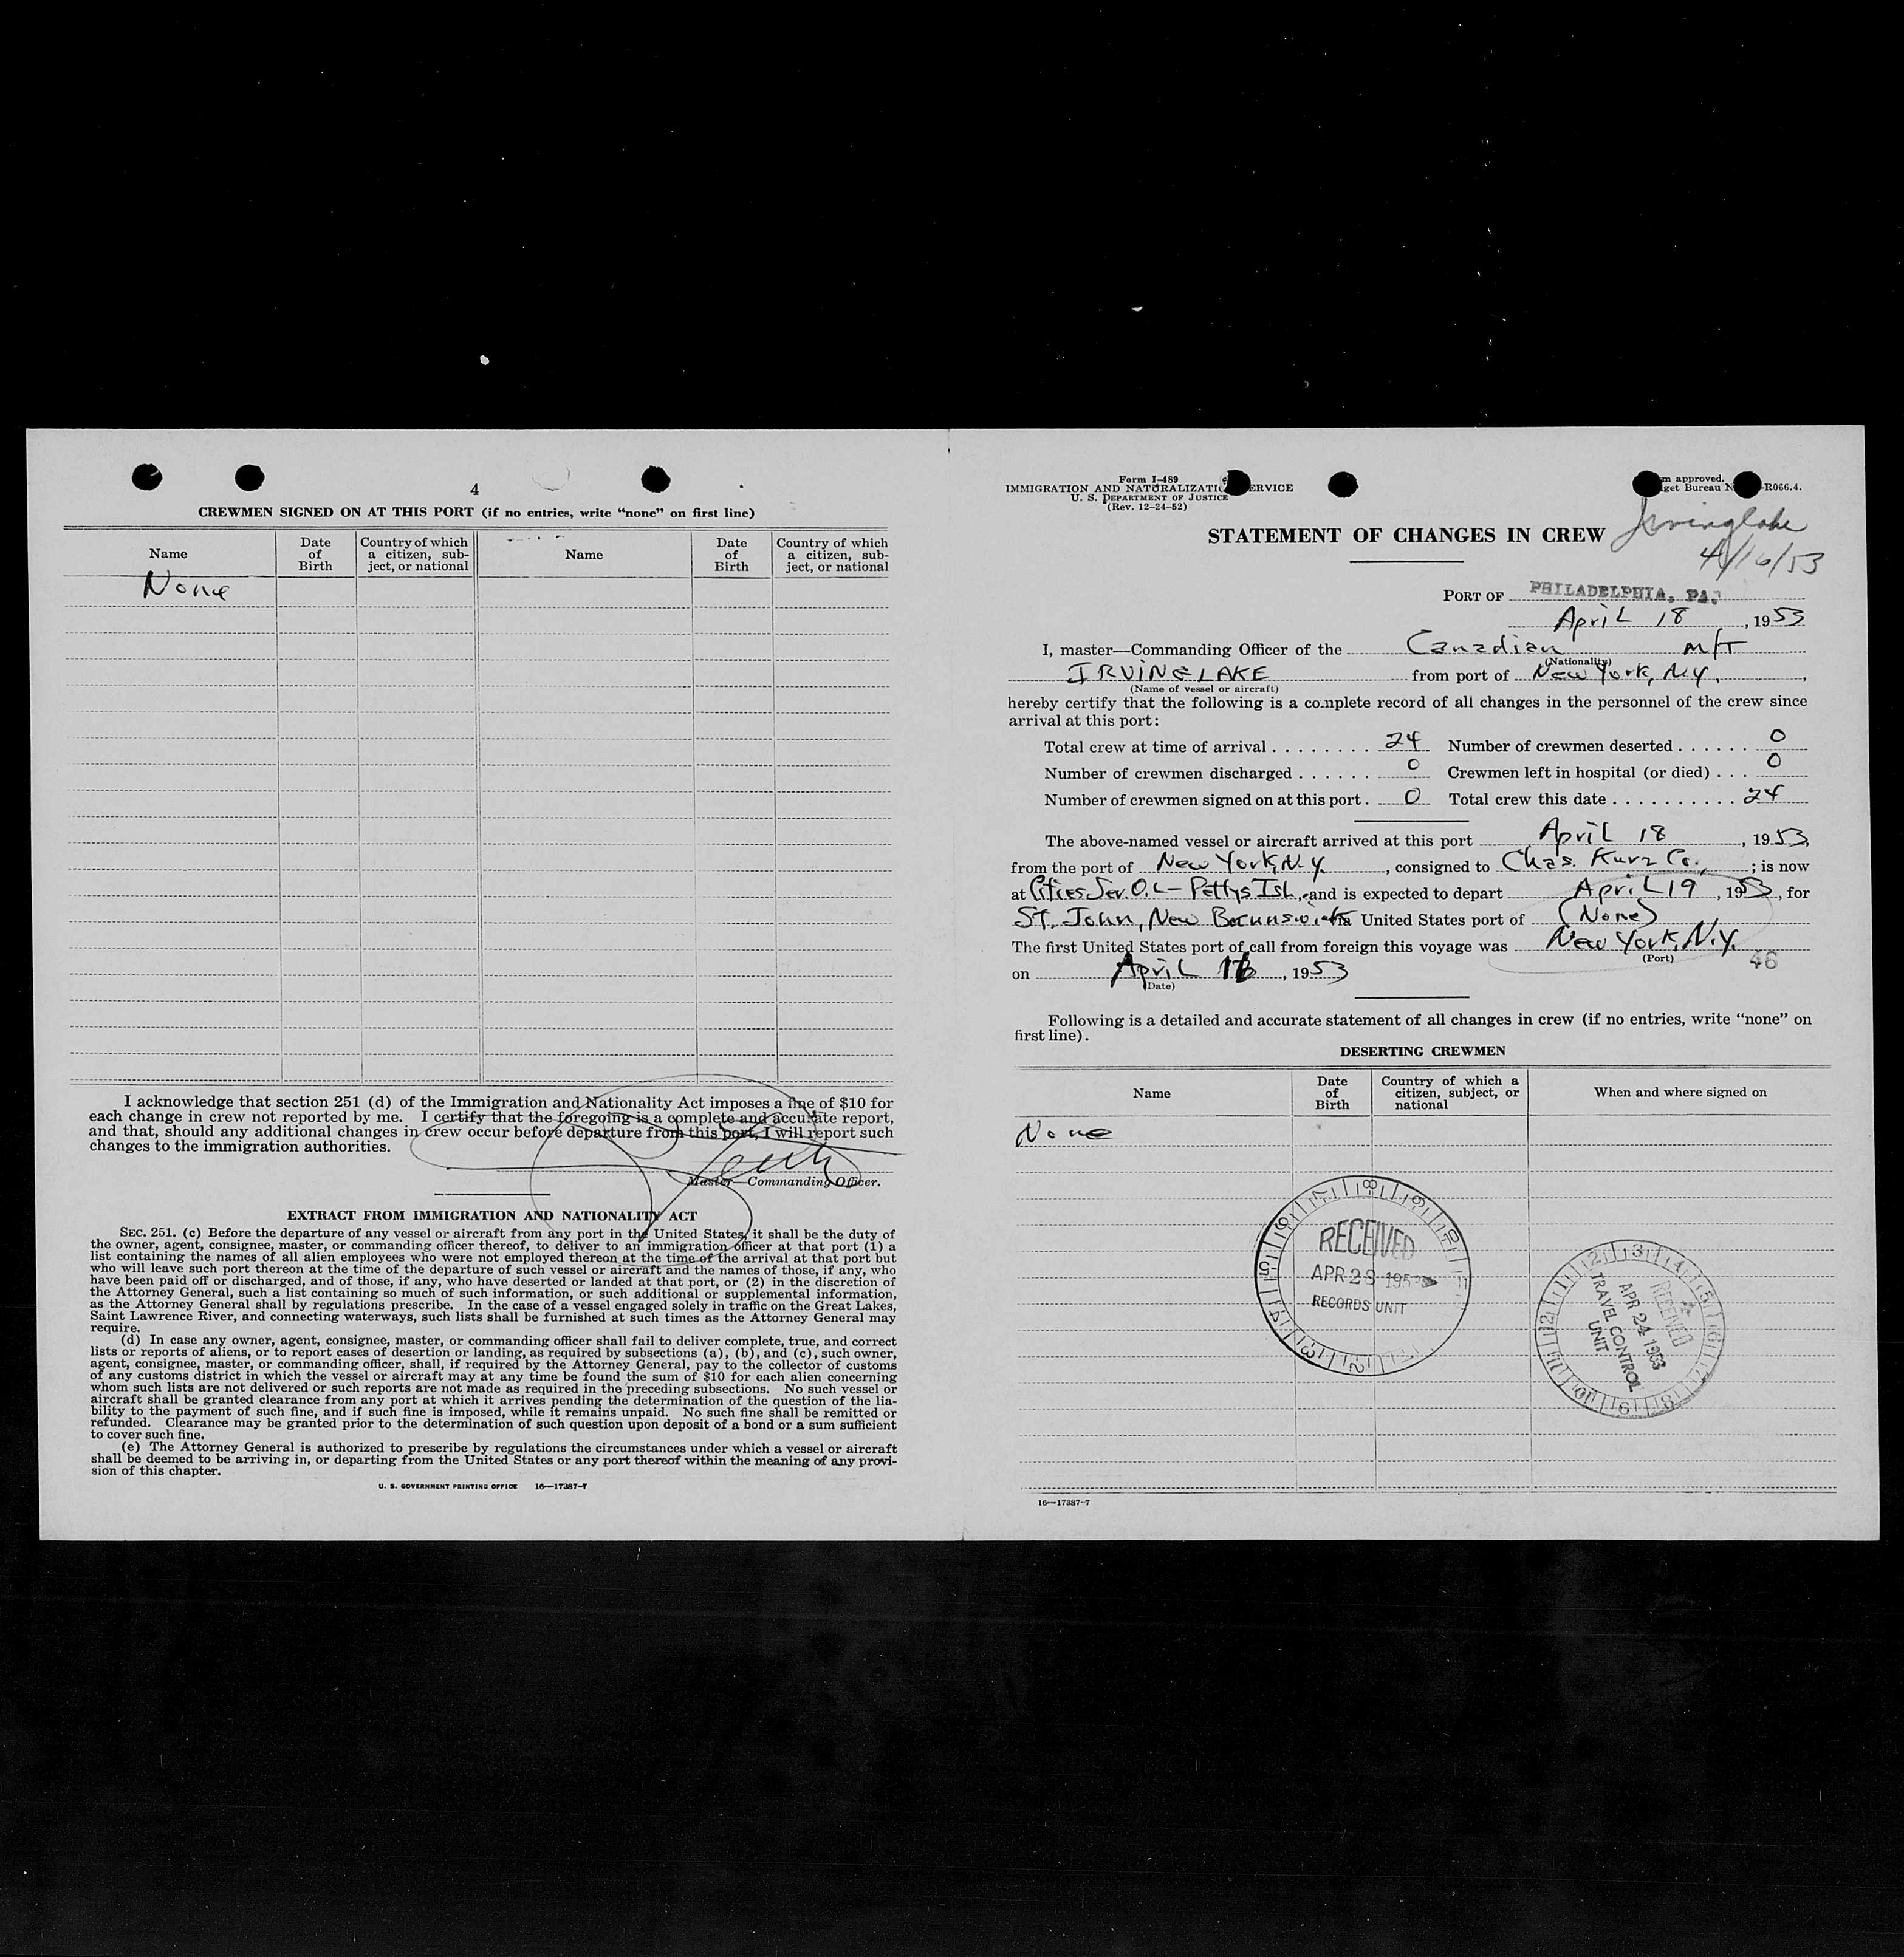 4
CREWMEN SIGNED ON AT THIS PORT (if no entries, write “none” on first line)
Name
Date of Birth
Country of which a citizen, subject, or national
Name
Date of Birth
Country of which a citizen, subject, or national
None
I acknowledge that section 251 (d) of the Immigration and Nationality Act imposes a fine of $10 for
each change in crew not reported by me. I certify that the foregoing is a complete and accurate report,
and that, should any additional changes in crew occur before departure from this port, I will report such
changes to the immigration authorities.
Master—Commanding Officer.
EXTRACT FROM IMMIGRATION AND NATIONALITY ACT
SEC. 251. (c) Before the departure of any vessel or aircraft from any port in the United States, it shall be the duty of
the owner, agent, consignee, master, or commanding officer thereof, to deliver to an immigration officer at that port (1) a
list containing the names of all alien employees who were not employed thereon at the time of the arrival at that port but
who will leave such port thereon at the time of the departure of such vessel or aircraft and the names of those, if any, who
have been paid off or discharged, and of those, if any, who have deserted or landed at that port, or (2) in the discretion of
the Attorney General, such a list containing so much of such information, or such additional or supplemental information,
as the Attorney General shall by regulations prescribe. In the case of a vessel engaged solely in traffic on the Great Lakes,
Saint Lawrence River, and connecting waterways, such lists shall be furnished at such times as the Attorney General may
require.
(d) In case any owner, agent, consignee, master, or commanding officer shall fail to deliver complete, true, and correct
lists or reports of aliens, or to report cases of desertion or landing, as required by subsections (a), (b), and (c), such owner,
agent, consignee, master, or commanding officer, shall, if required by the Attorney General, pay to the collector of customs
of any customs district in which the vessel or aircraft may at any time be found the sum of $10 for each alien concerning
whom such lists are not delivered or such reports are not made as required in the preceding subsections. No such vessel or
aircraft shall be granted clearance from any port at which it arrives pending the determination of the question of the lia-
bility to the payment of such fine, and if such fine is imposed, while it remains unpaid. No such fine shall be remitted or
refunded. Clearance may be granted prior to the determination of such question upon deposit of a bond or a sum sufficient
to cover such fine.
(e) The Attorney General is authorized to prescribe by regulations the circumstances under which a vessel or aircraft
shall be deemed to be arriving in, or departing from the United States or any port thereof within the meaning of any provi-
sion of this chapter.
U. S. GOVERNMENT PRINTING OFFICE 16—17387-7
Form I-489
IMMIGRATION AND NATURALIZATIO ERVICE
U. S. DEPARTMENT OF JUSTICE
(Rev. 12-24-52)
m approved.
get Bureau N -R066.4.
STATEMENT OF CHANGES IN CREW
Irvinglake
4/16/53
PORT OF PHILADELPHIA, PA.
April 18, 1953
I, master—Commanding Officer of the Canadian M/T
(Nationality)
IRVINGLAKE from port of New York, N.Y.,
(Name of vessel or aircraft)
hereby certify that the following is a complete record of all changes in the personnel of the crew since
arrival at this port:
Total crew at time of arrival 24 Number of crewmen deserted 0
Number of crewmen discharged 0 Crewmen left in hospital (or died) 0
Number of crewmen signed on at this port. 0 Total crew this date 24
The above-named vessel or aircraft arrived at this port April 18, 1953,
from the port of New York, N.Y., consigned to Chas. Kurz Co.; is now
at Cities Ser. O.L - Pettys Isl, and is expected to depart April 19, 1953, for
St. John, New Brunswick via United States port of (None)
The first United States port of call from foreign this voyage was New York, N.Y.
(Port)
46
on April 16, 1953
(Date)
Following is a detailed and accurate statement of all changes in crew (if no entries, write “none” on
first line).
DESERTING CREWMEN
Name
Date of Birth
Country of which a citizen, subject, or national
When and where signed on
None
RECEIVED
APR 23 1953
RECORDS UNIT
RECEIVED
APR 24 1953
TRAVEL CONTROL
UNIT
16—17387-7